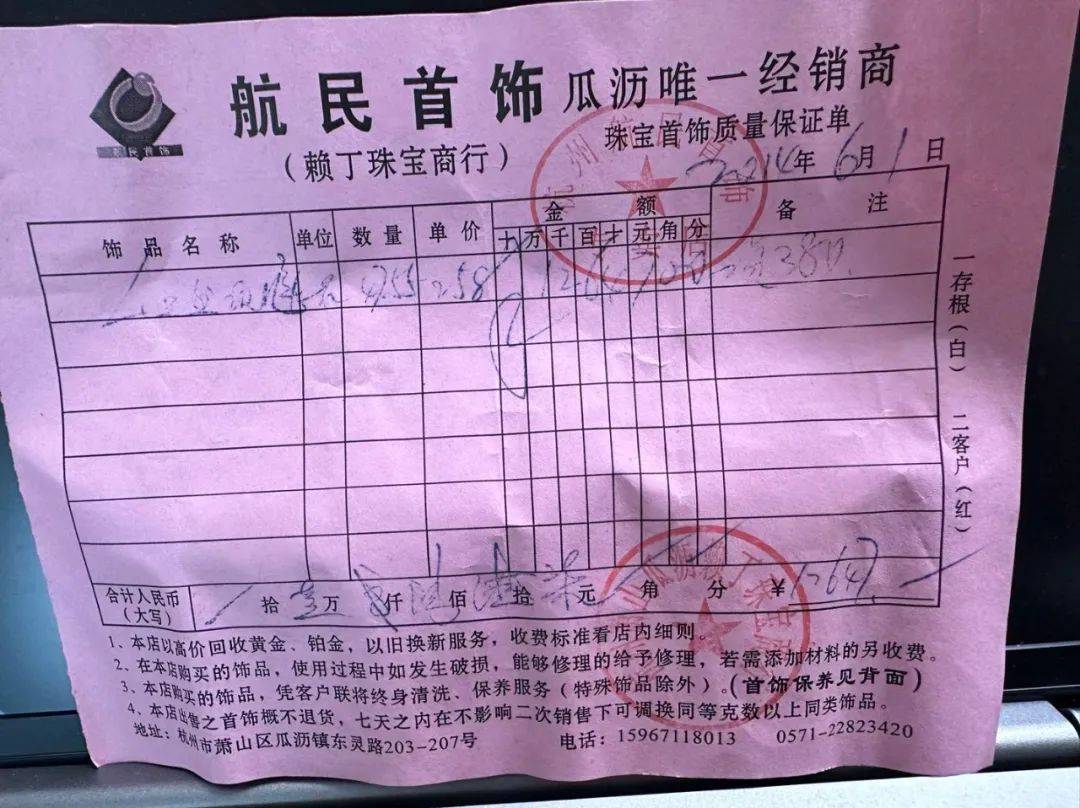 航民首饰 瓜沥唯一经销商
航民首饰
(赖丁珠宝商行) 珠宝首饰质量保证单
2014年6月1日
饰品名称 单位 数量 单价 金额 备注
十 万 千 百 才 元 角 分
258
合计人民币(大写) 拾 壹万 仟 陆佰 拾 柒元 角 分 ¥12647
1、本店以高价回收黄金、铂金,以旧换新服务,收费标准看店内细则。
2、在本店购买的饰品,使用过程中如发生破损,能够修理的给予修理,若需添加材料的另收费。
3、本店购买的饰品,凭客户联将终身清洗、保养服务(特殊饰品除外)。(首饰保养见背面)
4、本店出售之首饰概不退货,七天之内在不影响二次销售下可调换同等克数以上同类饰品。
地址:杭州市萧山区瓜沥镇东灵路203-207号 电话:15967118013 0571-22823420
一存根(白) 二客户(红)